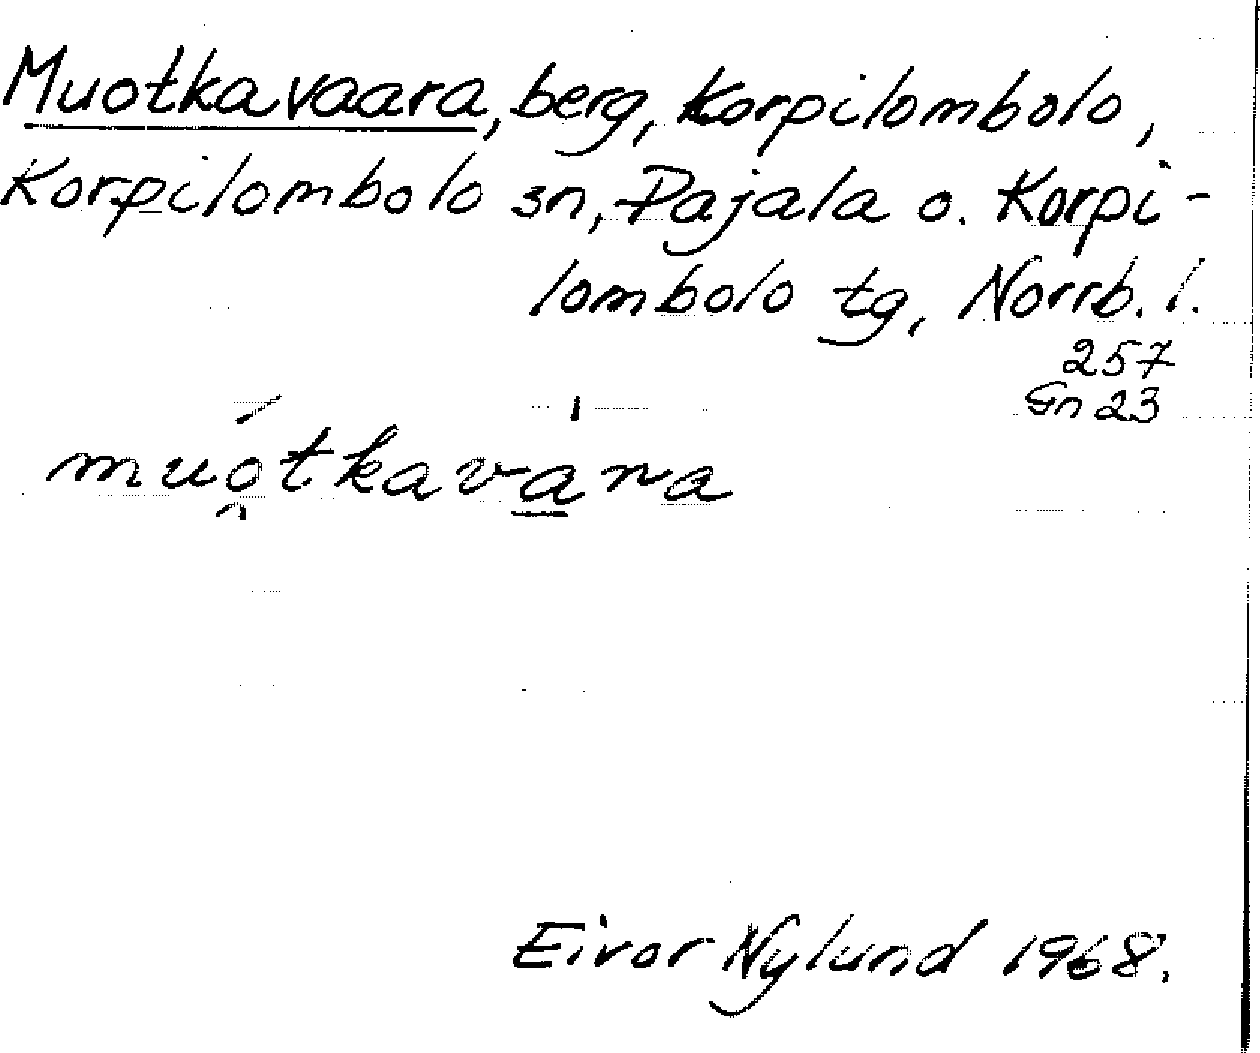 Muotkavaara, berg, Korpilombolo,
Korpilombolo sn, Pajala o. Korpi-
lombolo tg, Norrb. l.
257
Gn 23
muó̯tkavā̀ra
Eivor Nylund 1968.